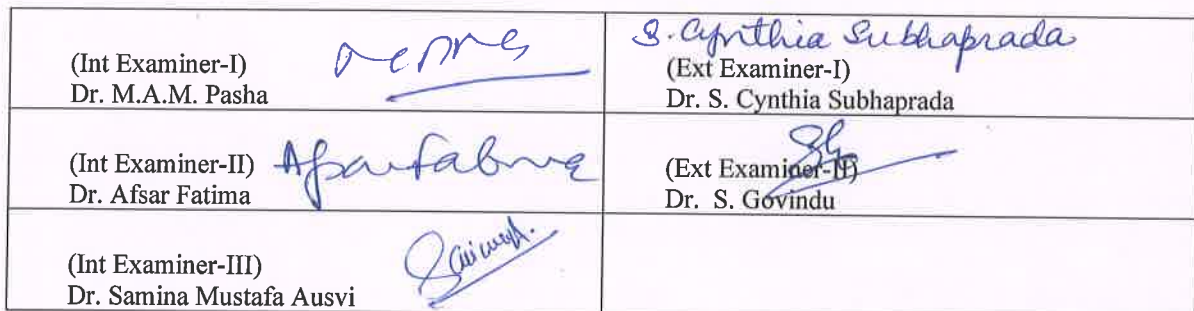 S. Cynthia Subhaprada
(Int Examiner-I)
Dr. M.A.M. Pasha
(Ext Examiner-I)
Dr. S. Cynthia Subhaprada
(Int Examiner-II) Afsar Fatima
Dr. Afsar Fatima
(Ext Examiner-II)
Dr. S. Govindu
(Int Examiner-III)
Dr. Samina Mustafa Ausvi